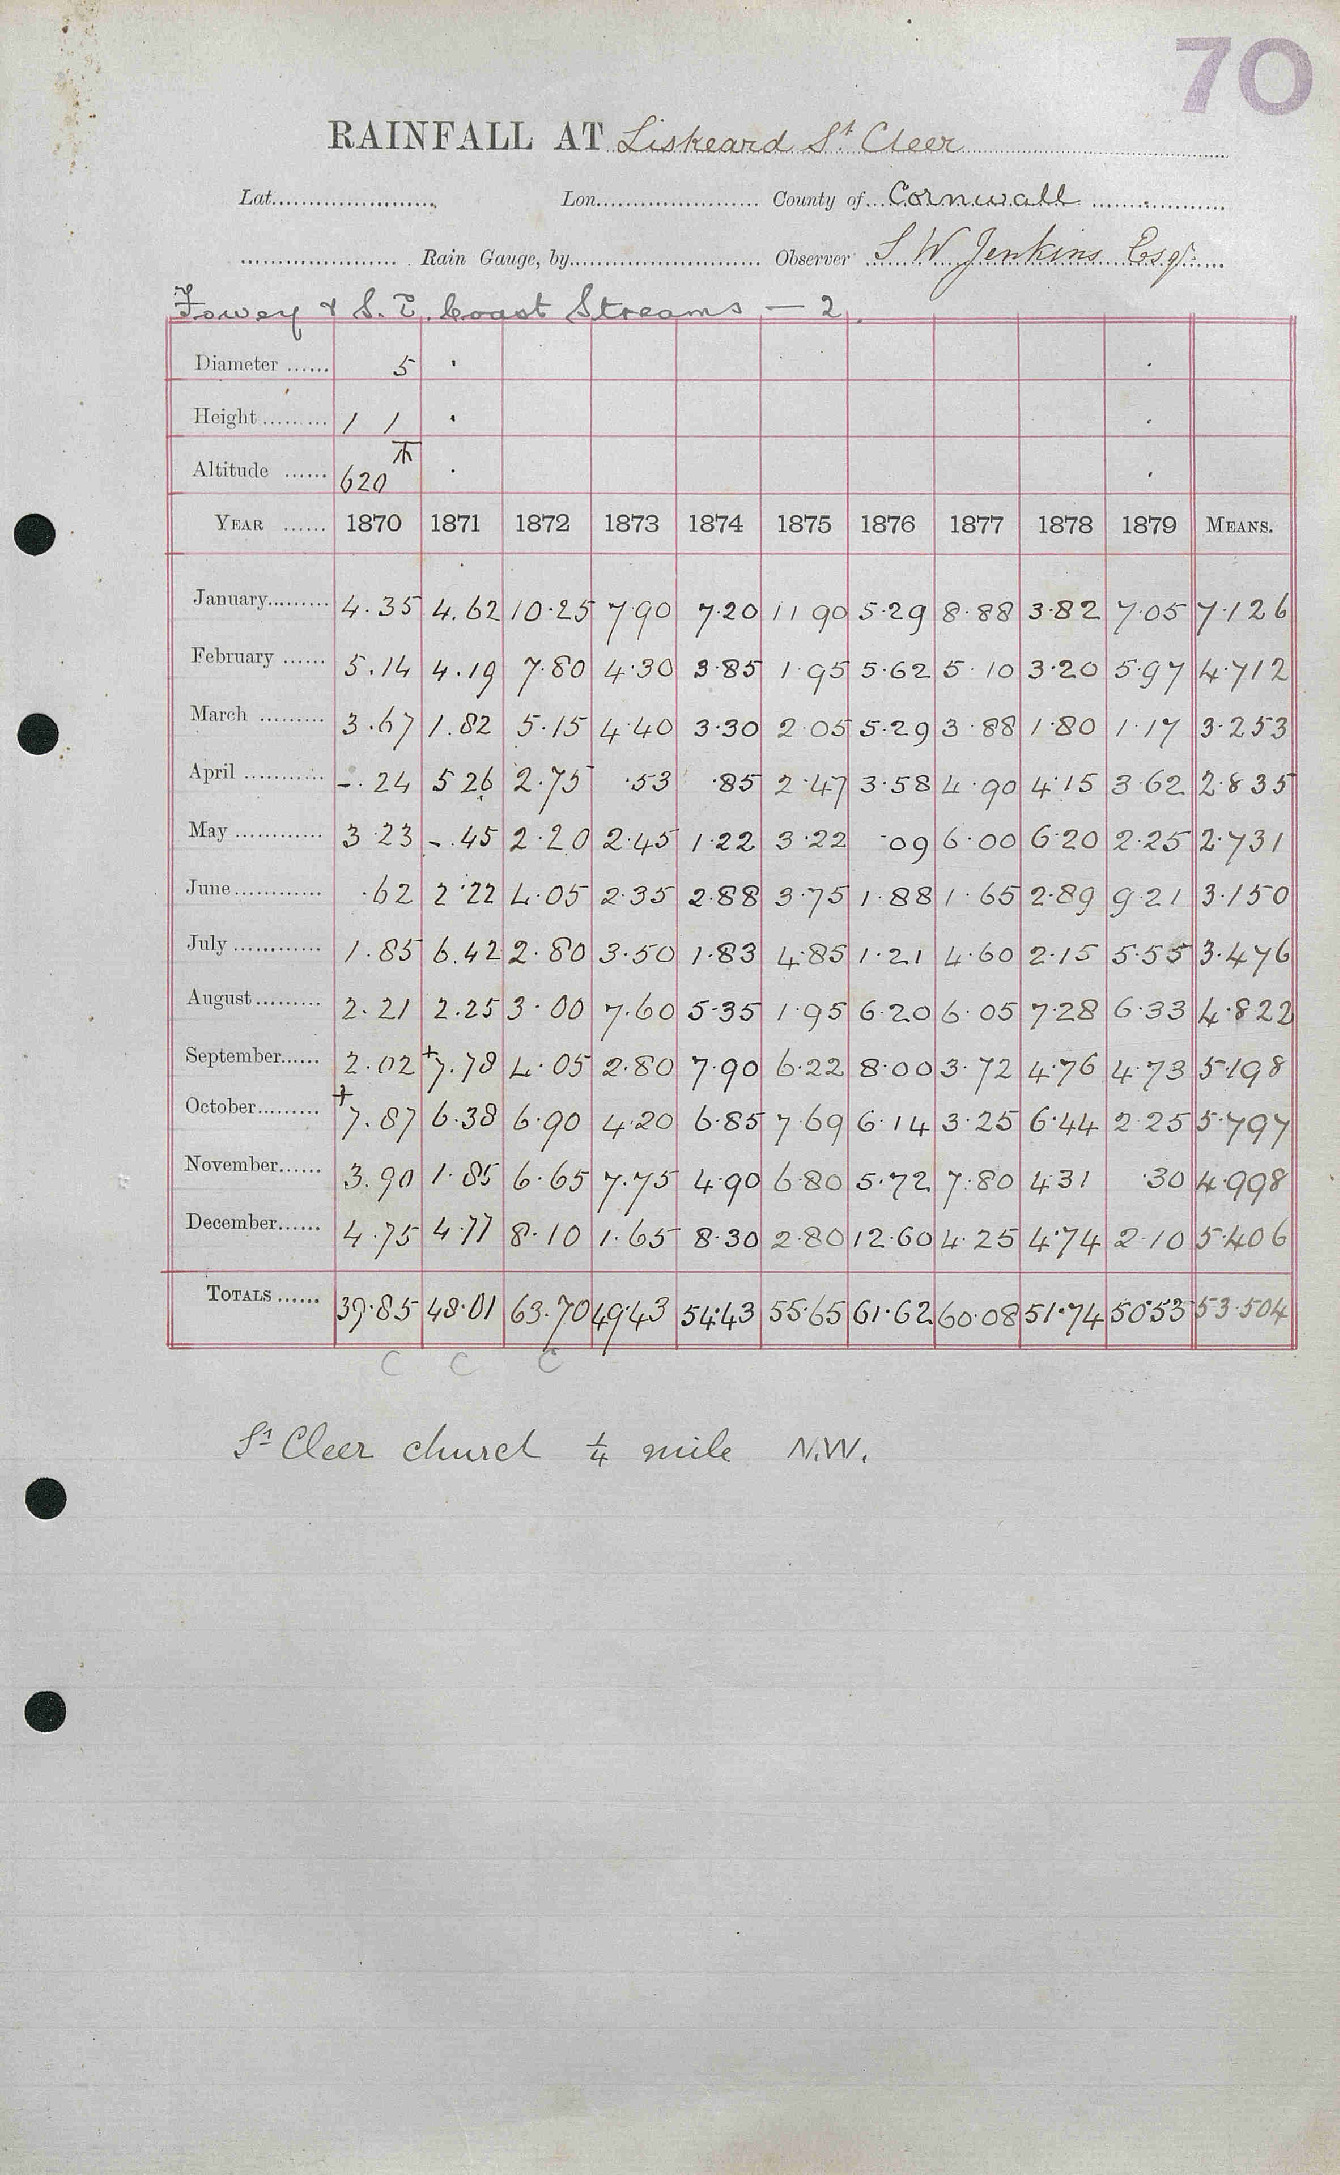 70
RAINFALL AT Liskeard St Cleer
Lat. Lon. County of Cornwall
Rain Gauge, by Observer S W Jenkins Esqr.
Fowey & S.E. Coast Streams — 2.
Diameter 5 .  .
Height 1 1 .  .
Altitude 620 .  .
YEAR 1870 1871 1872 1873 1874 1875 1876 1877 1878 1879 MEANS.
January 4.35 4.62 10.25 7.90 7.20 11 90 5.29 8.88 3.82 7.05 7.126
February 5.14 4.19 7.80 4.30 3.85 1.95 5.62 5.10 3.20 5.97 4.712
March 3.67 1.82 5.15 4.40 3.30 2.05 5.29 3.88 1.80 1.17 3.253
April -.24 5 26 2.75 .53 .85 2.47 3.58 4.90 4.15 3.62 2.835
May 3 23 -.45 2.20 2.45 1.22 3.22 .09 6.00 6.20 2.25 2.731
June .62 2.22 4.05 2.35 2.88 3.75 1.88 1.65 2.89 9.21 3.150
July 1.85 6.42 2.80 3.50 1.83 4.85 1.21 4.60 2.15 5.55 3.476
August 2.21 2.25 3.00 7.60 5.35 1.95 6.20 6.05 7.28 6.33 4.822
September 2.02 +7.78 4.05 2.80 7.90 6.22 8.00 3.72 4.76 4.73 5.198
October +7.87 6.38 6.90 4.20 6.85 7.69 6.14 3.25 6.44 2.25 5.797
November 3.90 1.85 6.65 7.75 4.90 6.80 5.72 7.80 4.31 .30 4.998
December 4.75 4.77 8.10 1.65 8.30 2.80 12.60 4.25 4.74 2.10 5.406
TOTALS 39.85 48.01 63.70 49.43 54.43 55.65 61.62 60.08 51.74 50.53 53.504
C C C
St Cleer church ¼ mile N.W.